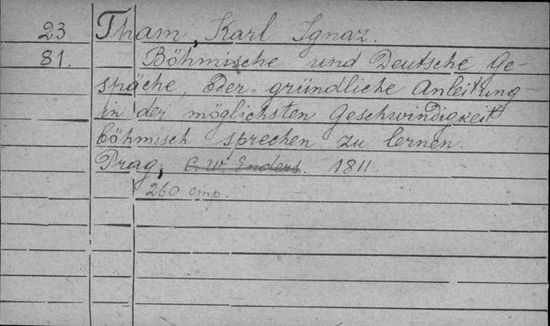 23 Tham, Karl Ignaz.
81. Böhmische und Deutsche Ge-
späche, oder gründliche Anleitung
in der möglichsten Geschwindigkeit
böhmisch sprechen zu lernen.
Prag, C. W. Enders. 1811.
260 стр.